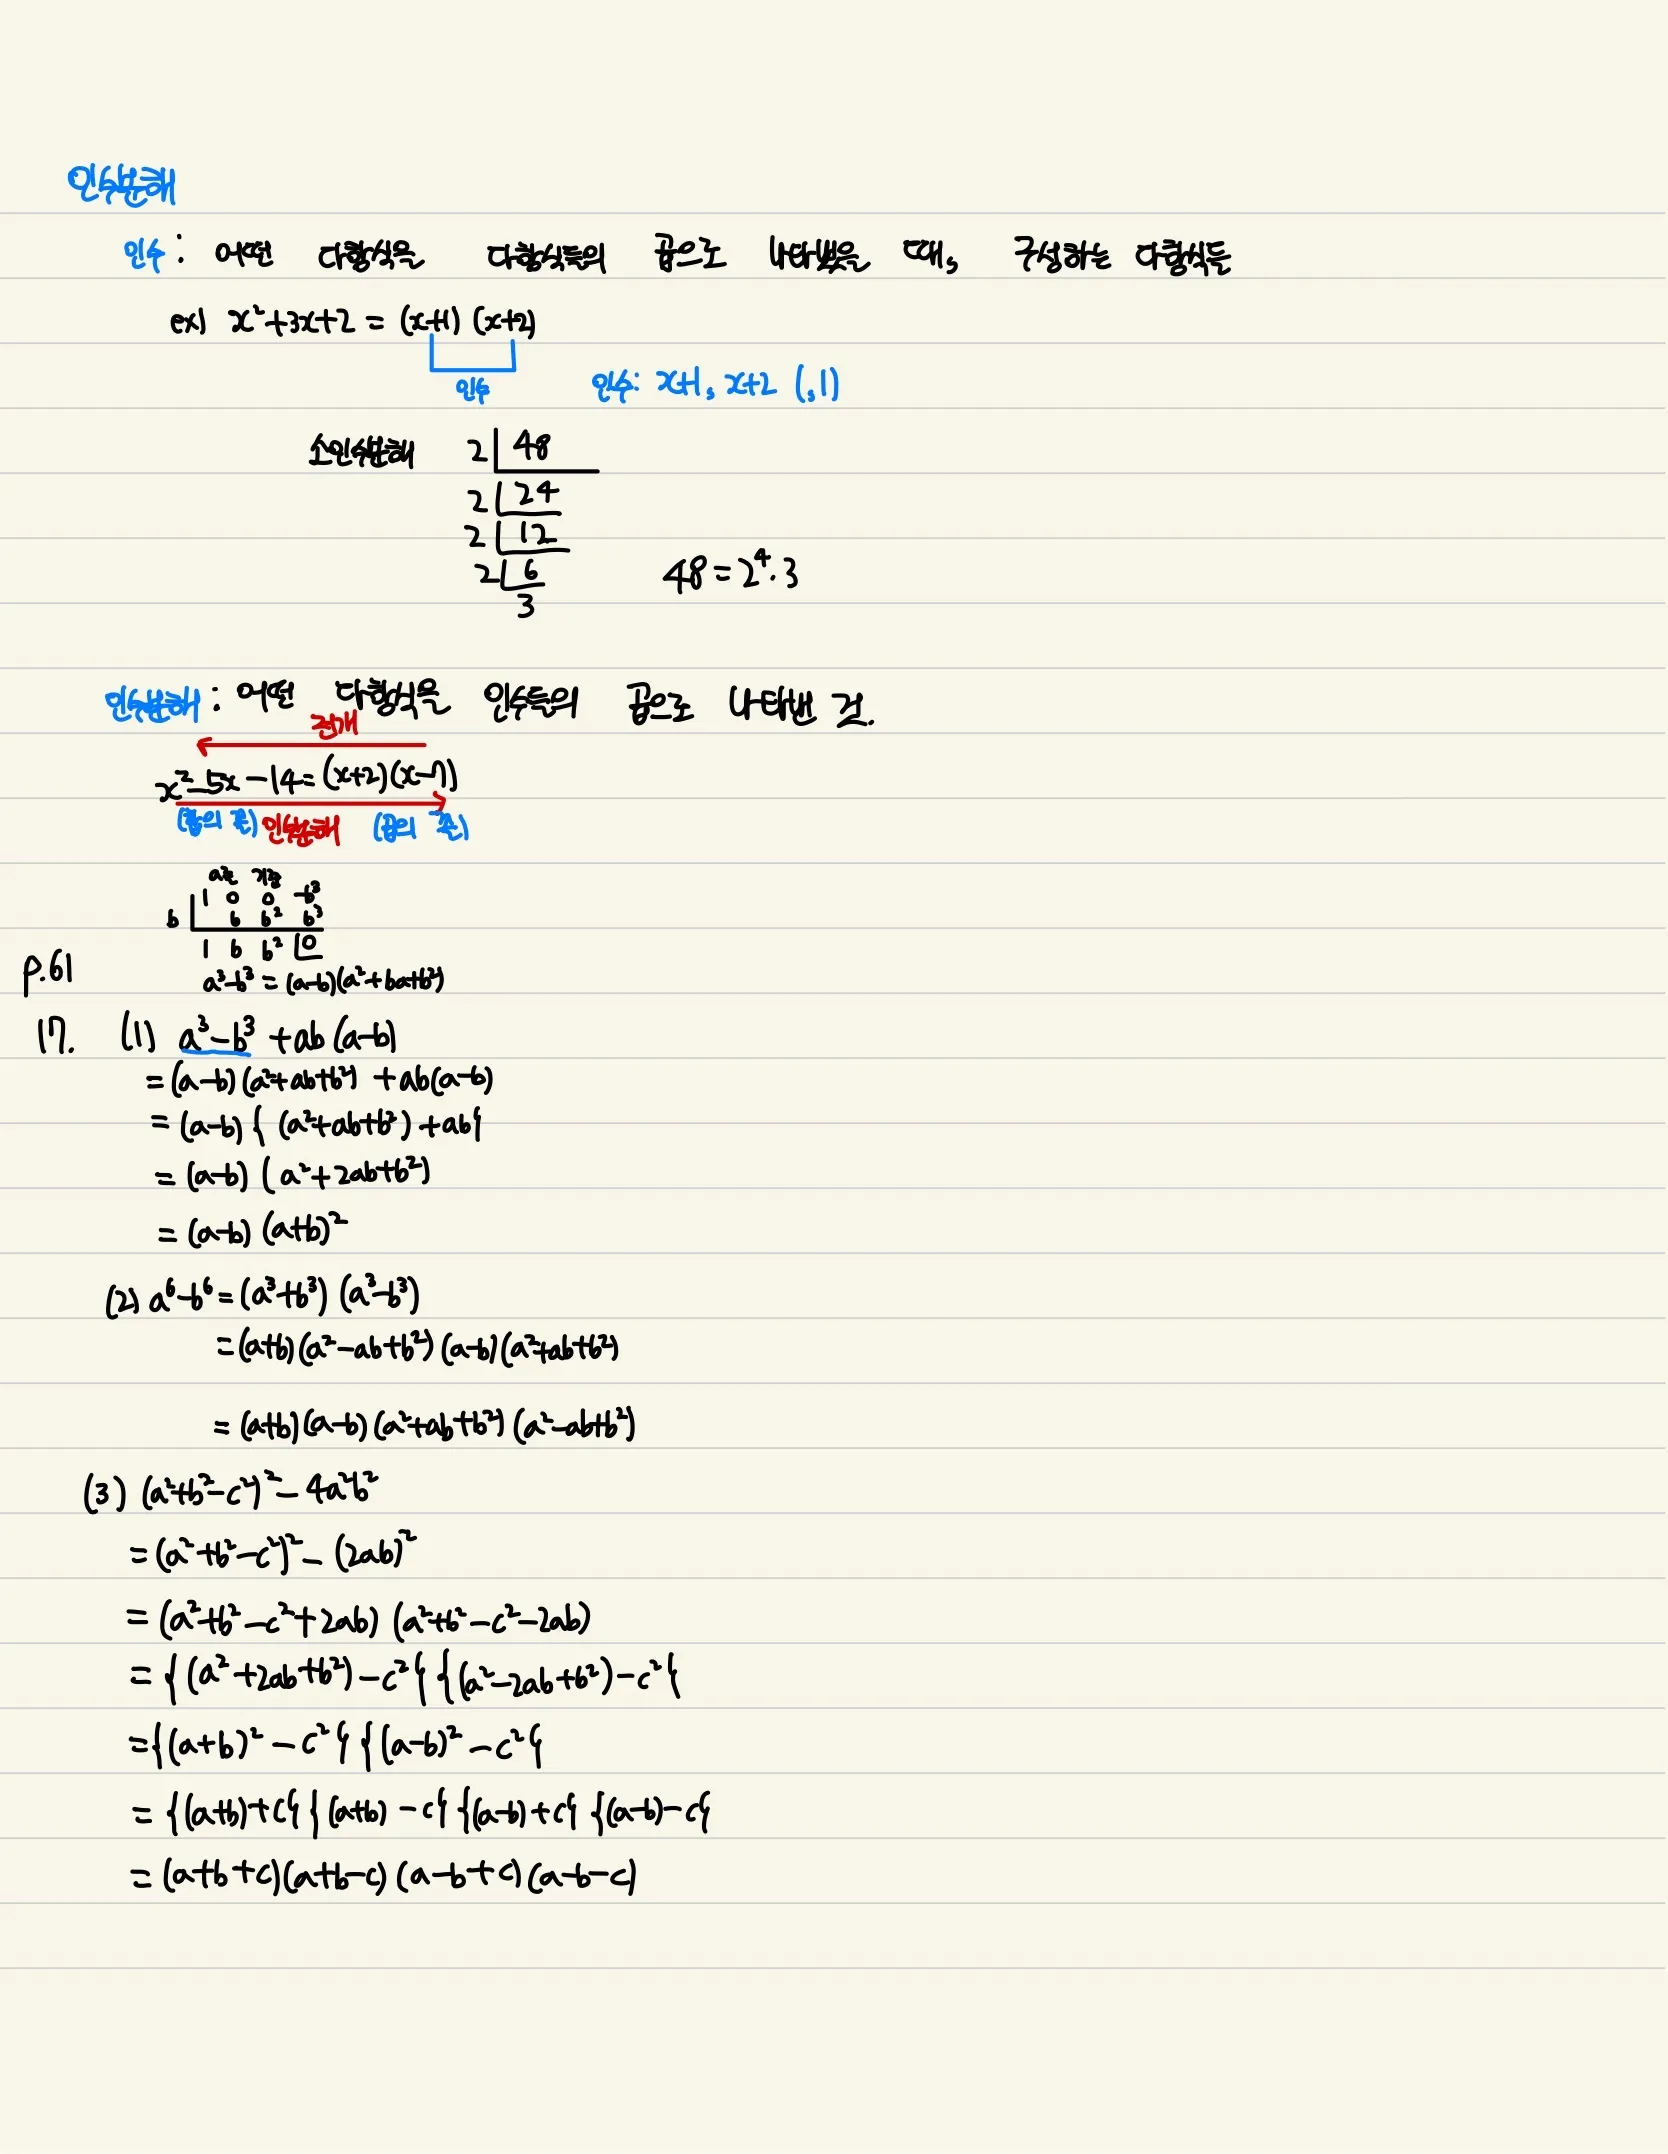 인수분해
인수 : 어떤 다항식을 다항식들의 곱으로 나타냈을 때, 구성하는 다항식들
ex) x²+3x+2 = (x+1) (x+2)
인수 인수: x+1, x+2 (,1)
소인수분해 2 48
2 24
2 12
2 6 48=2⁴·3
3
인수분해 : 어떤 다항식을 인수들의 곱으로 나타낸 것.
전개
x²-5x-14=(x+2)(x-7)
(합의 꼴) 인수분해 (곱의 꼴)
a로 기준
1 0 0 -b³
b b b² b³
1 b b² 0
p.61
a³-b³ = (a-b)(a²+ba+b²)
17. (1) a³-b³ +ab(a-b)
= (a-b)(a²+ab+b²) +ab(a-b)
= (a-b){ (a²+ab+b²) +ab}
= (a-b) (a²+2ab+b²)
= (a-b) (a+b)²
(2) a⁶-b⁶ = (a³+b³) (a³-b³)
= (a+b)(a²-ab+b²)(a-b)(a²+ab+b²)
= (a+b)(a-b)(a²+ab+b²)(a²-ab+b²)
(3) (a²+b²-c²)² - 4a²b²
= (a²+b²-c²)² - (2ab)²
= (a²+b²-c²+2ab) (a²+b²-c²-2ab)
= {(a²+2ab+b²)-c²} {(a²-2ab+b²)-c²}
= {(a+b)²-c²} {(a-b)²-c²}
= {(a+b)+c} {(a+b)-c} {(a-b)+c} {(a-b)-c}
= (a+b+c)(a+b-c)(a-b+c)(a-b-c)